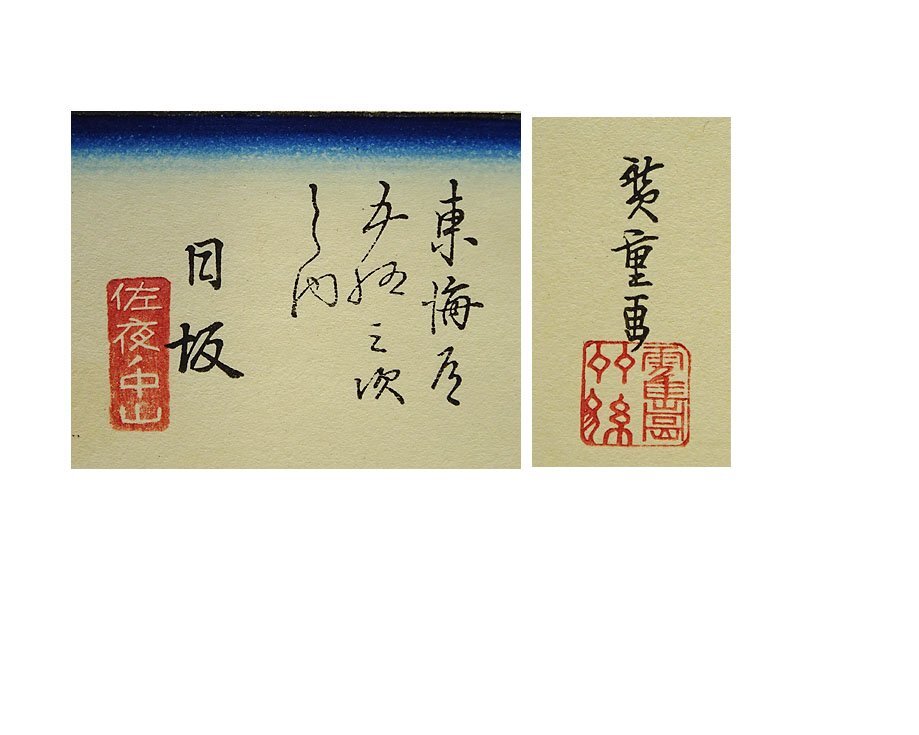 東海道
五拾三次
之内
日坂
佐夜ノ中山
廣重画
竹孫